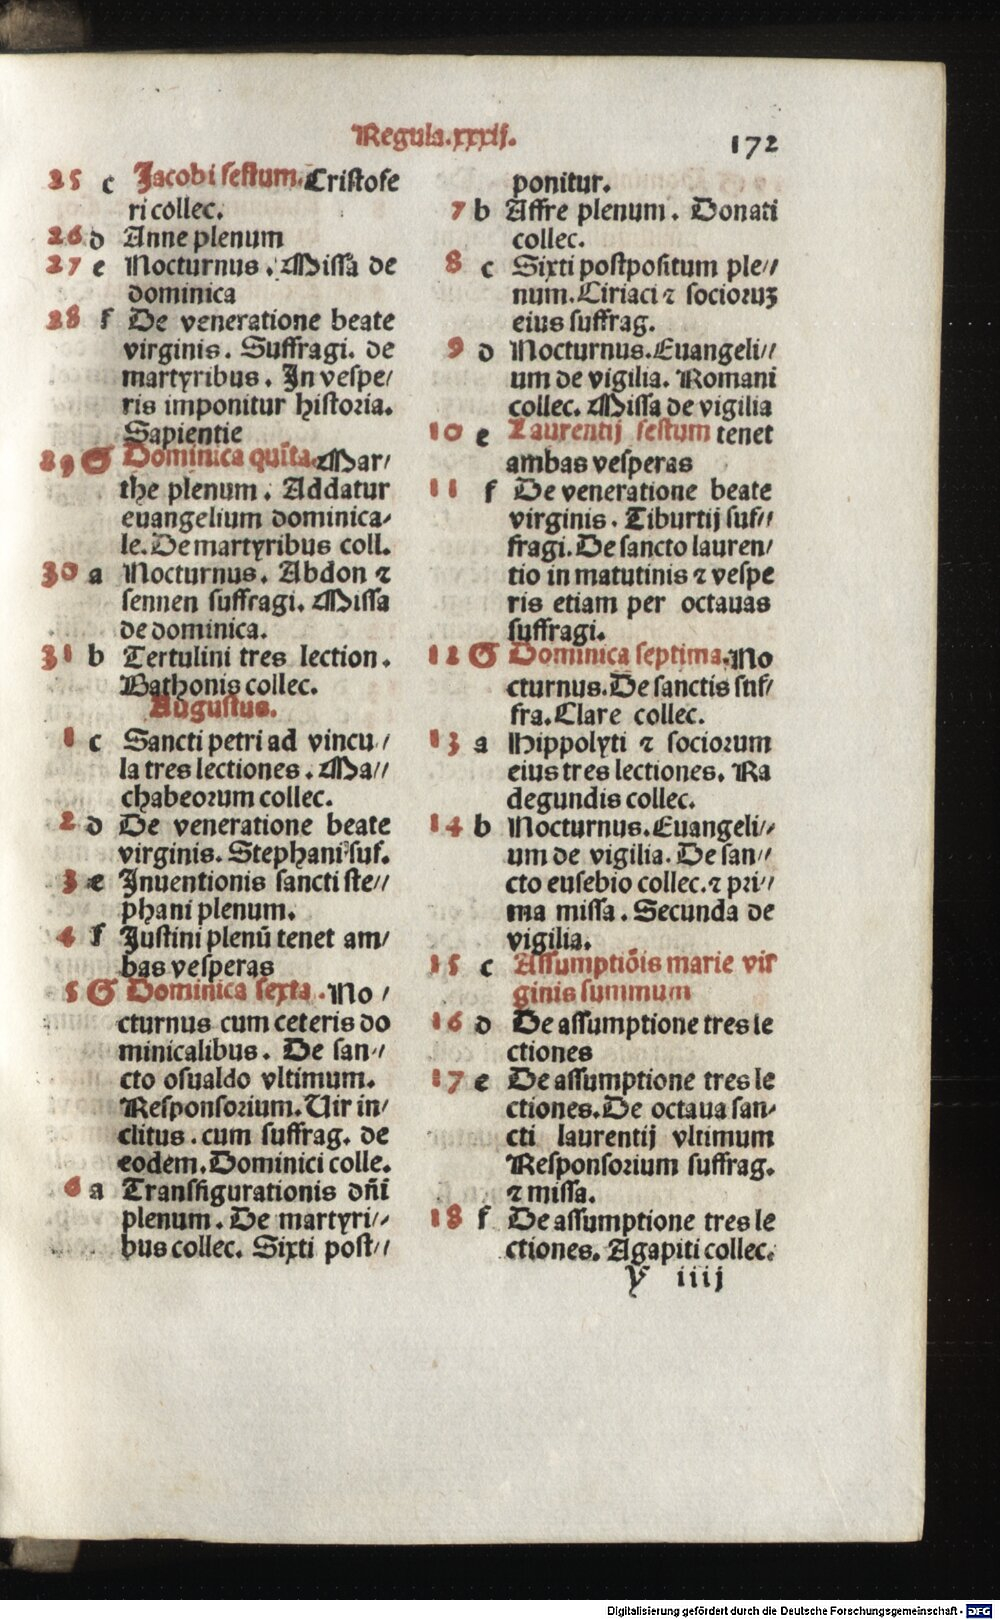 Regula.xxxij.
172
25 c Jacobi festum. Cristofe
ri collec.
26 d Anne plenum
27 e Nocturnus. Missa de
dominica
28 f De veneratione beate
virginis. Suffragi. de
martyribus. In vespe/
ris imponitur historia.
Sapientie
29 G Dominica quīta. Mar/
the plenum. Addatur
euangelium dominica/
le. De martyribus coll.
30 a Nocturnus. Abdon ⁊
sennen suffragi. Missa
de dominica.
31 b Tertulini tres lection.
Bathonis collec.
Augustus.
1 c Sancti petri ad vincu/
la tres lectiones. Ma//
chabeorum collec.
2 d De veneratione beate
virginis. Stephani suf.
3 e Inuentionis sancti ste//
phani plenum.
4 f Justini plenū tenet am/
bas vesperas
5 G Dominica sexta. No/
cturnus cum ceteris do
minicalibus. De san//
cto osualdo vltimum.
Responsorium. Uir in/
clitus. cum suffrag. de
eodem. Dominici colle.
6 a Transfigurationis dn̄i
plenum. De martyri//
bus collec. Sixti post//
ponitur.
7 b Affre plenum. Donati
collec.
8 c Sixti postpositum ple//
num. Ciriaci ⁊ socioruꝫ
eius suffrag.
9 d Nocturnus. Euangeli//
um de vigilia. Romani
collec. Missa de vigilia
10 e Laurentij festum tenet
ambas vesperas
11 f De veneratione beate
virginis. Tiburtij suf//
fragi. De sancto lauren/
tio in matutinis ⁊ vespe
ris etiam per octauas
suffragi.
12 G Dominica septima. No
cturnus. De sanctis suf/
fra. Clare collec.
13 a Hippolyti ⁊ sociorum
eius tres lectiones. Ra
degundis collec.
14 b Nocturnus. Euangeli//
um de vigilia. De san//
cto eusebio collec. ⁊ pri//
ma missa. Secunda de
vigilia.
15 c Assumptiōis marie vir
ginis summum
16 d De assumptione tres le
ctiones
17 e De assumptione tres le
ctiones. De octaua san/
cti laurentij vltimum
Responsorium suffrag.
⁊ missa.
18 f De assumptione tres le
ctiones. Agapiti collec.
y iiij
Digitalisierung gefördert durch die Deutsche Forschungsgemeinschaft - DFG